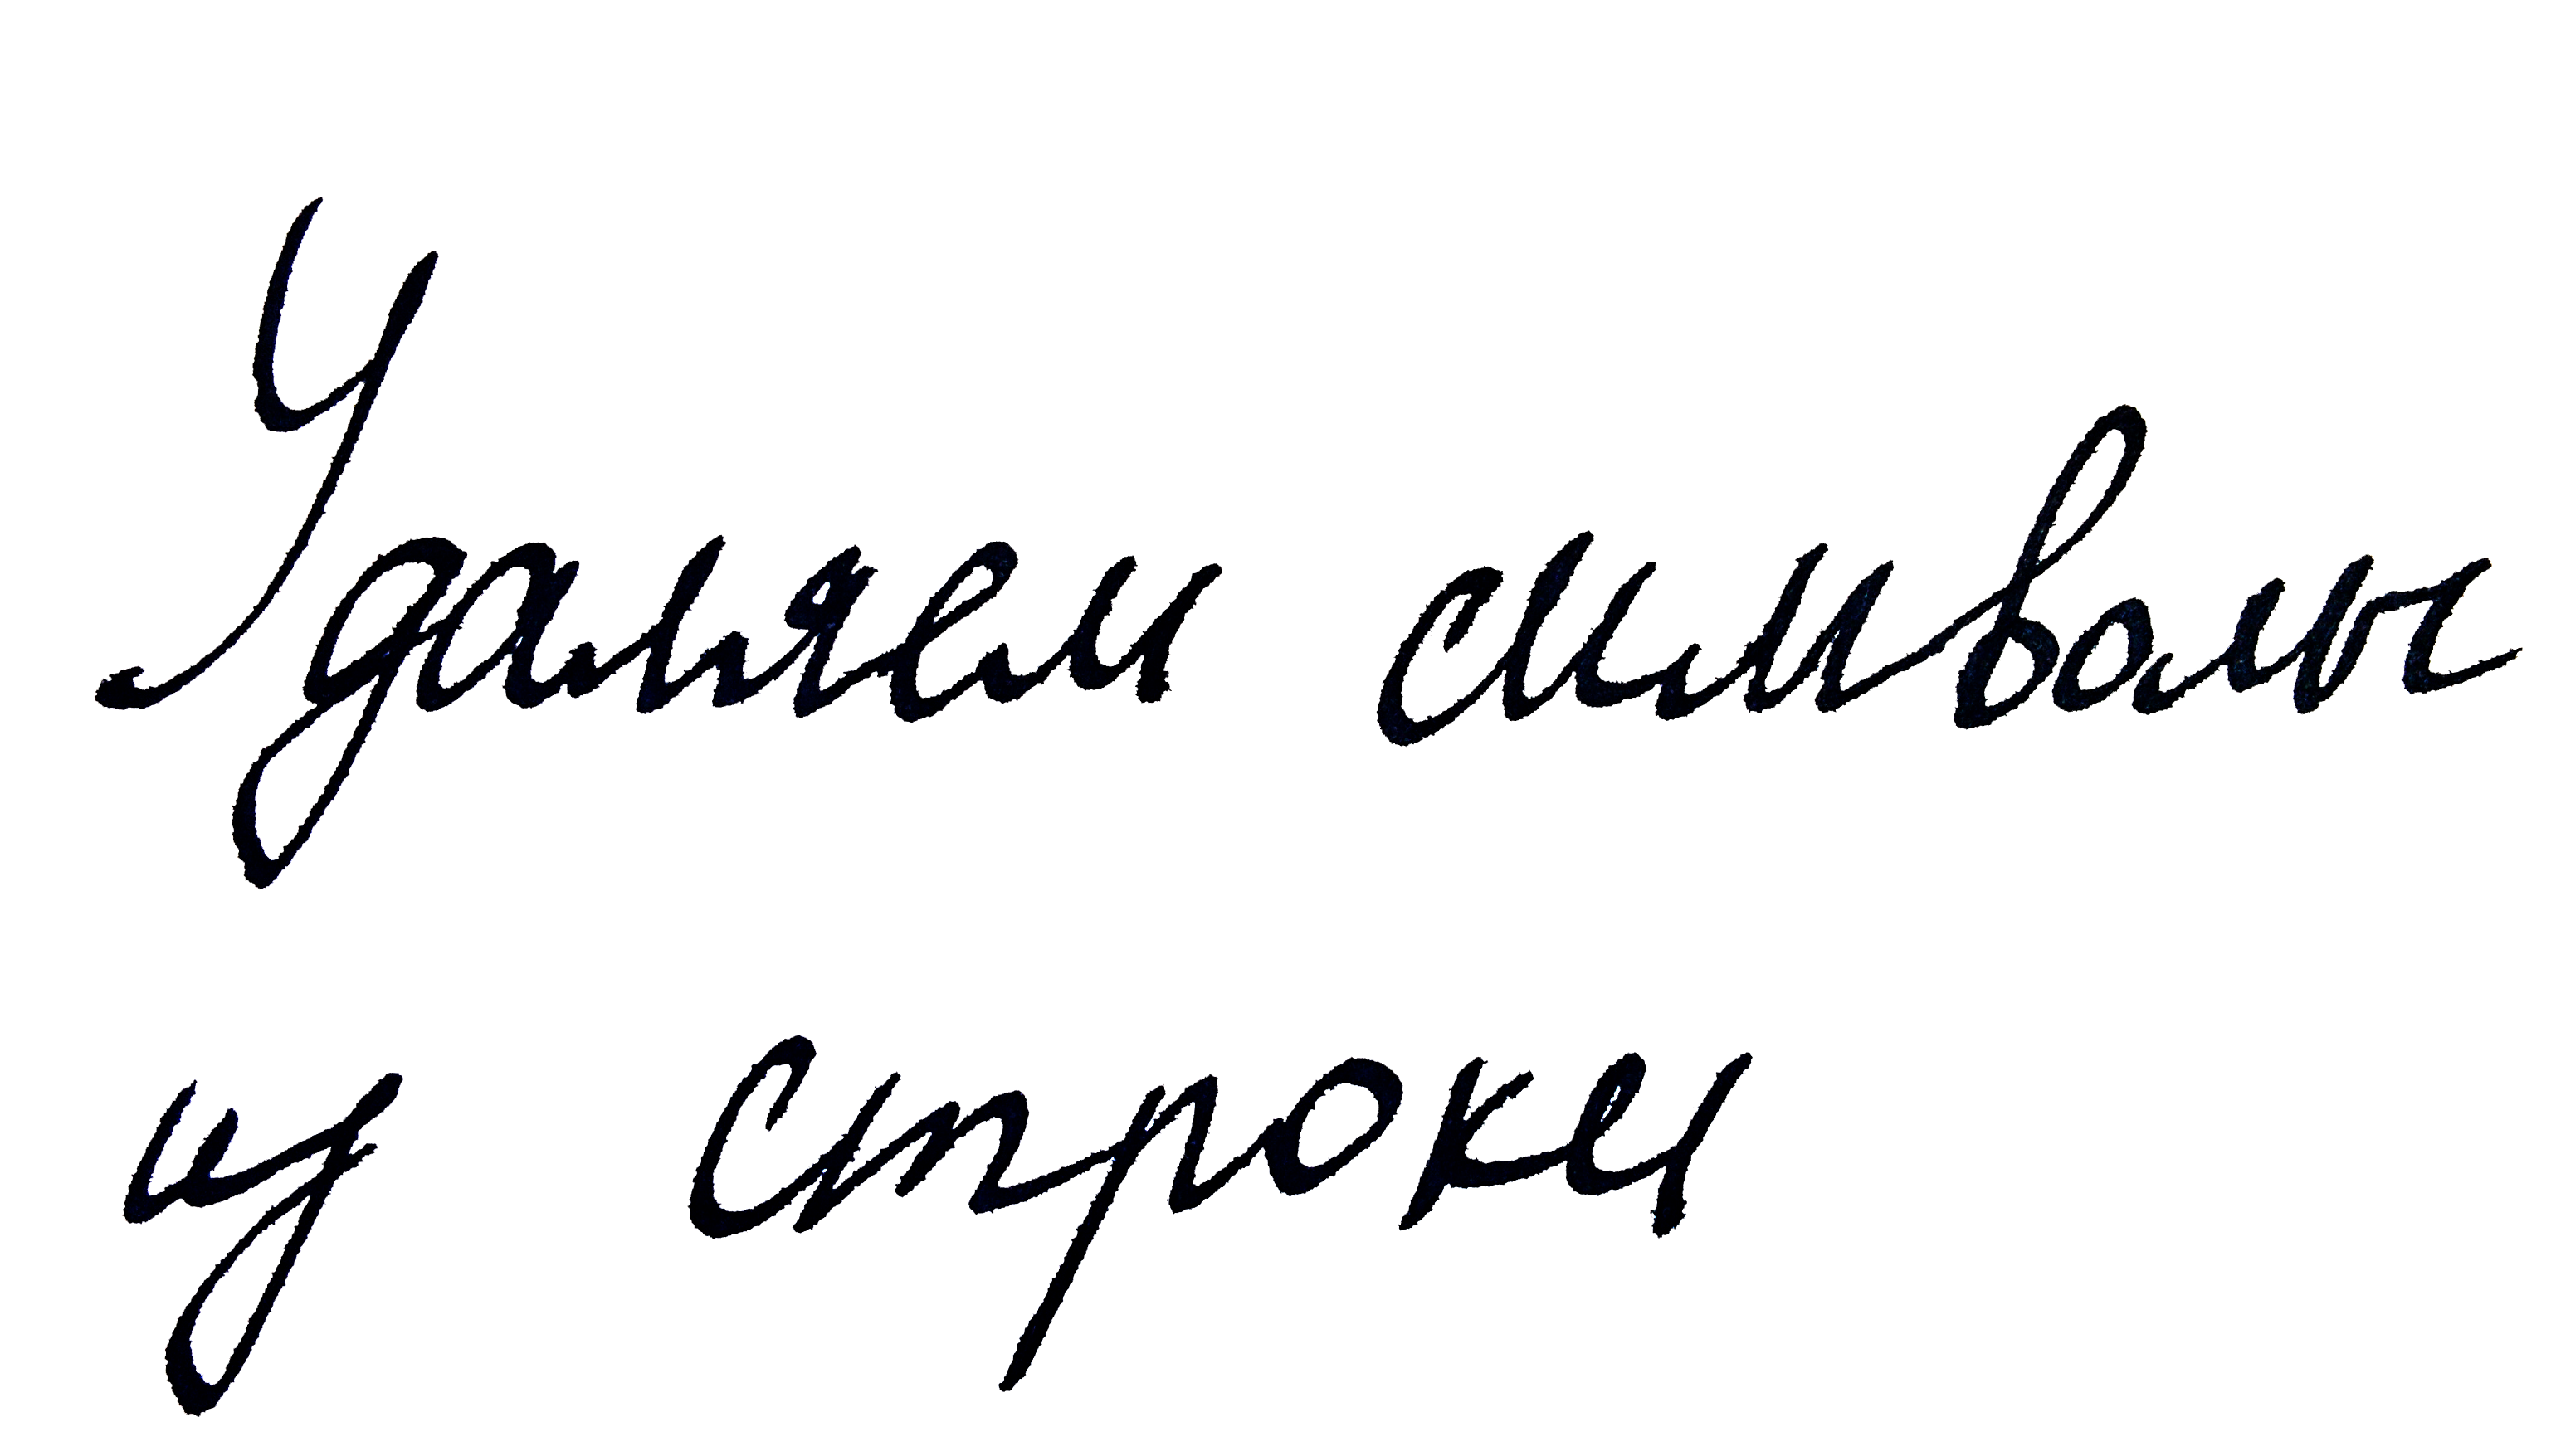 Удаляем символы
из строки